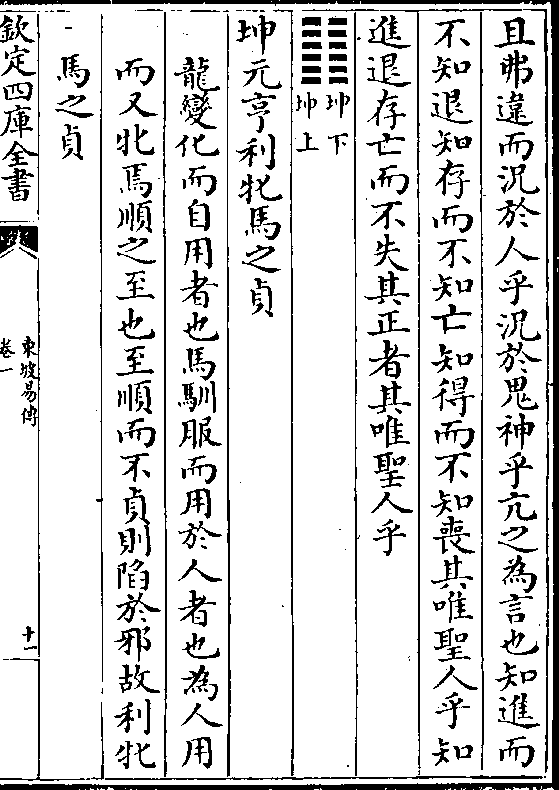 且弗違而況於人乎況於鬼神乎亢之為言也知進而
不知退知存而不知亡知得而不知喪其唯聖人乎知
進退存亡而不失其正者其唯聖人乎
坤下
坤上
坤元亨利牝馬之貞
龍變化而自用者也馬馴服而用於人者也為人用
而又牝馬順之至也至順而不貞則陷於邪故利牝
馬之貞
欽定四庫全書
東坡易傳
卷一
十一